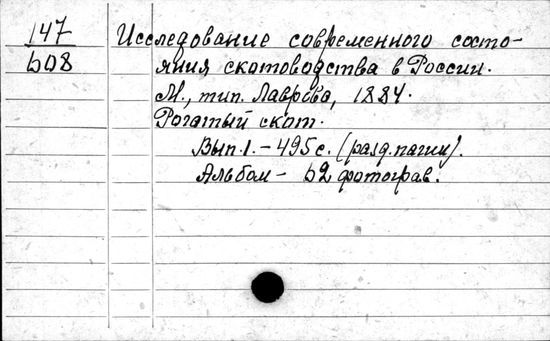 147
608
Исследование современного состо-
яния скотоводства в России.
М., тип. Лаврова, 1884.
Рогатый скот.
Вып. 1. – 495 с. (разд. пагин).
Альбом – 62 фотограв.